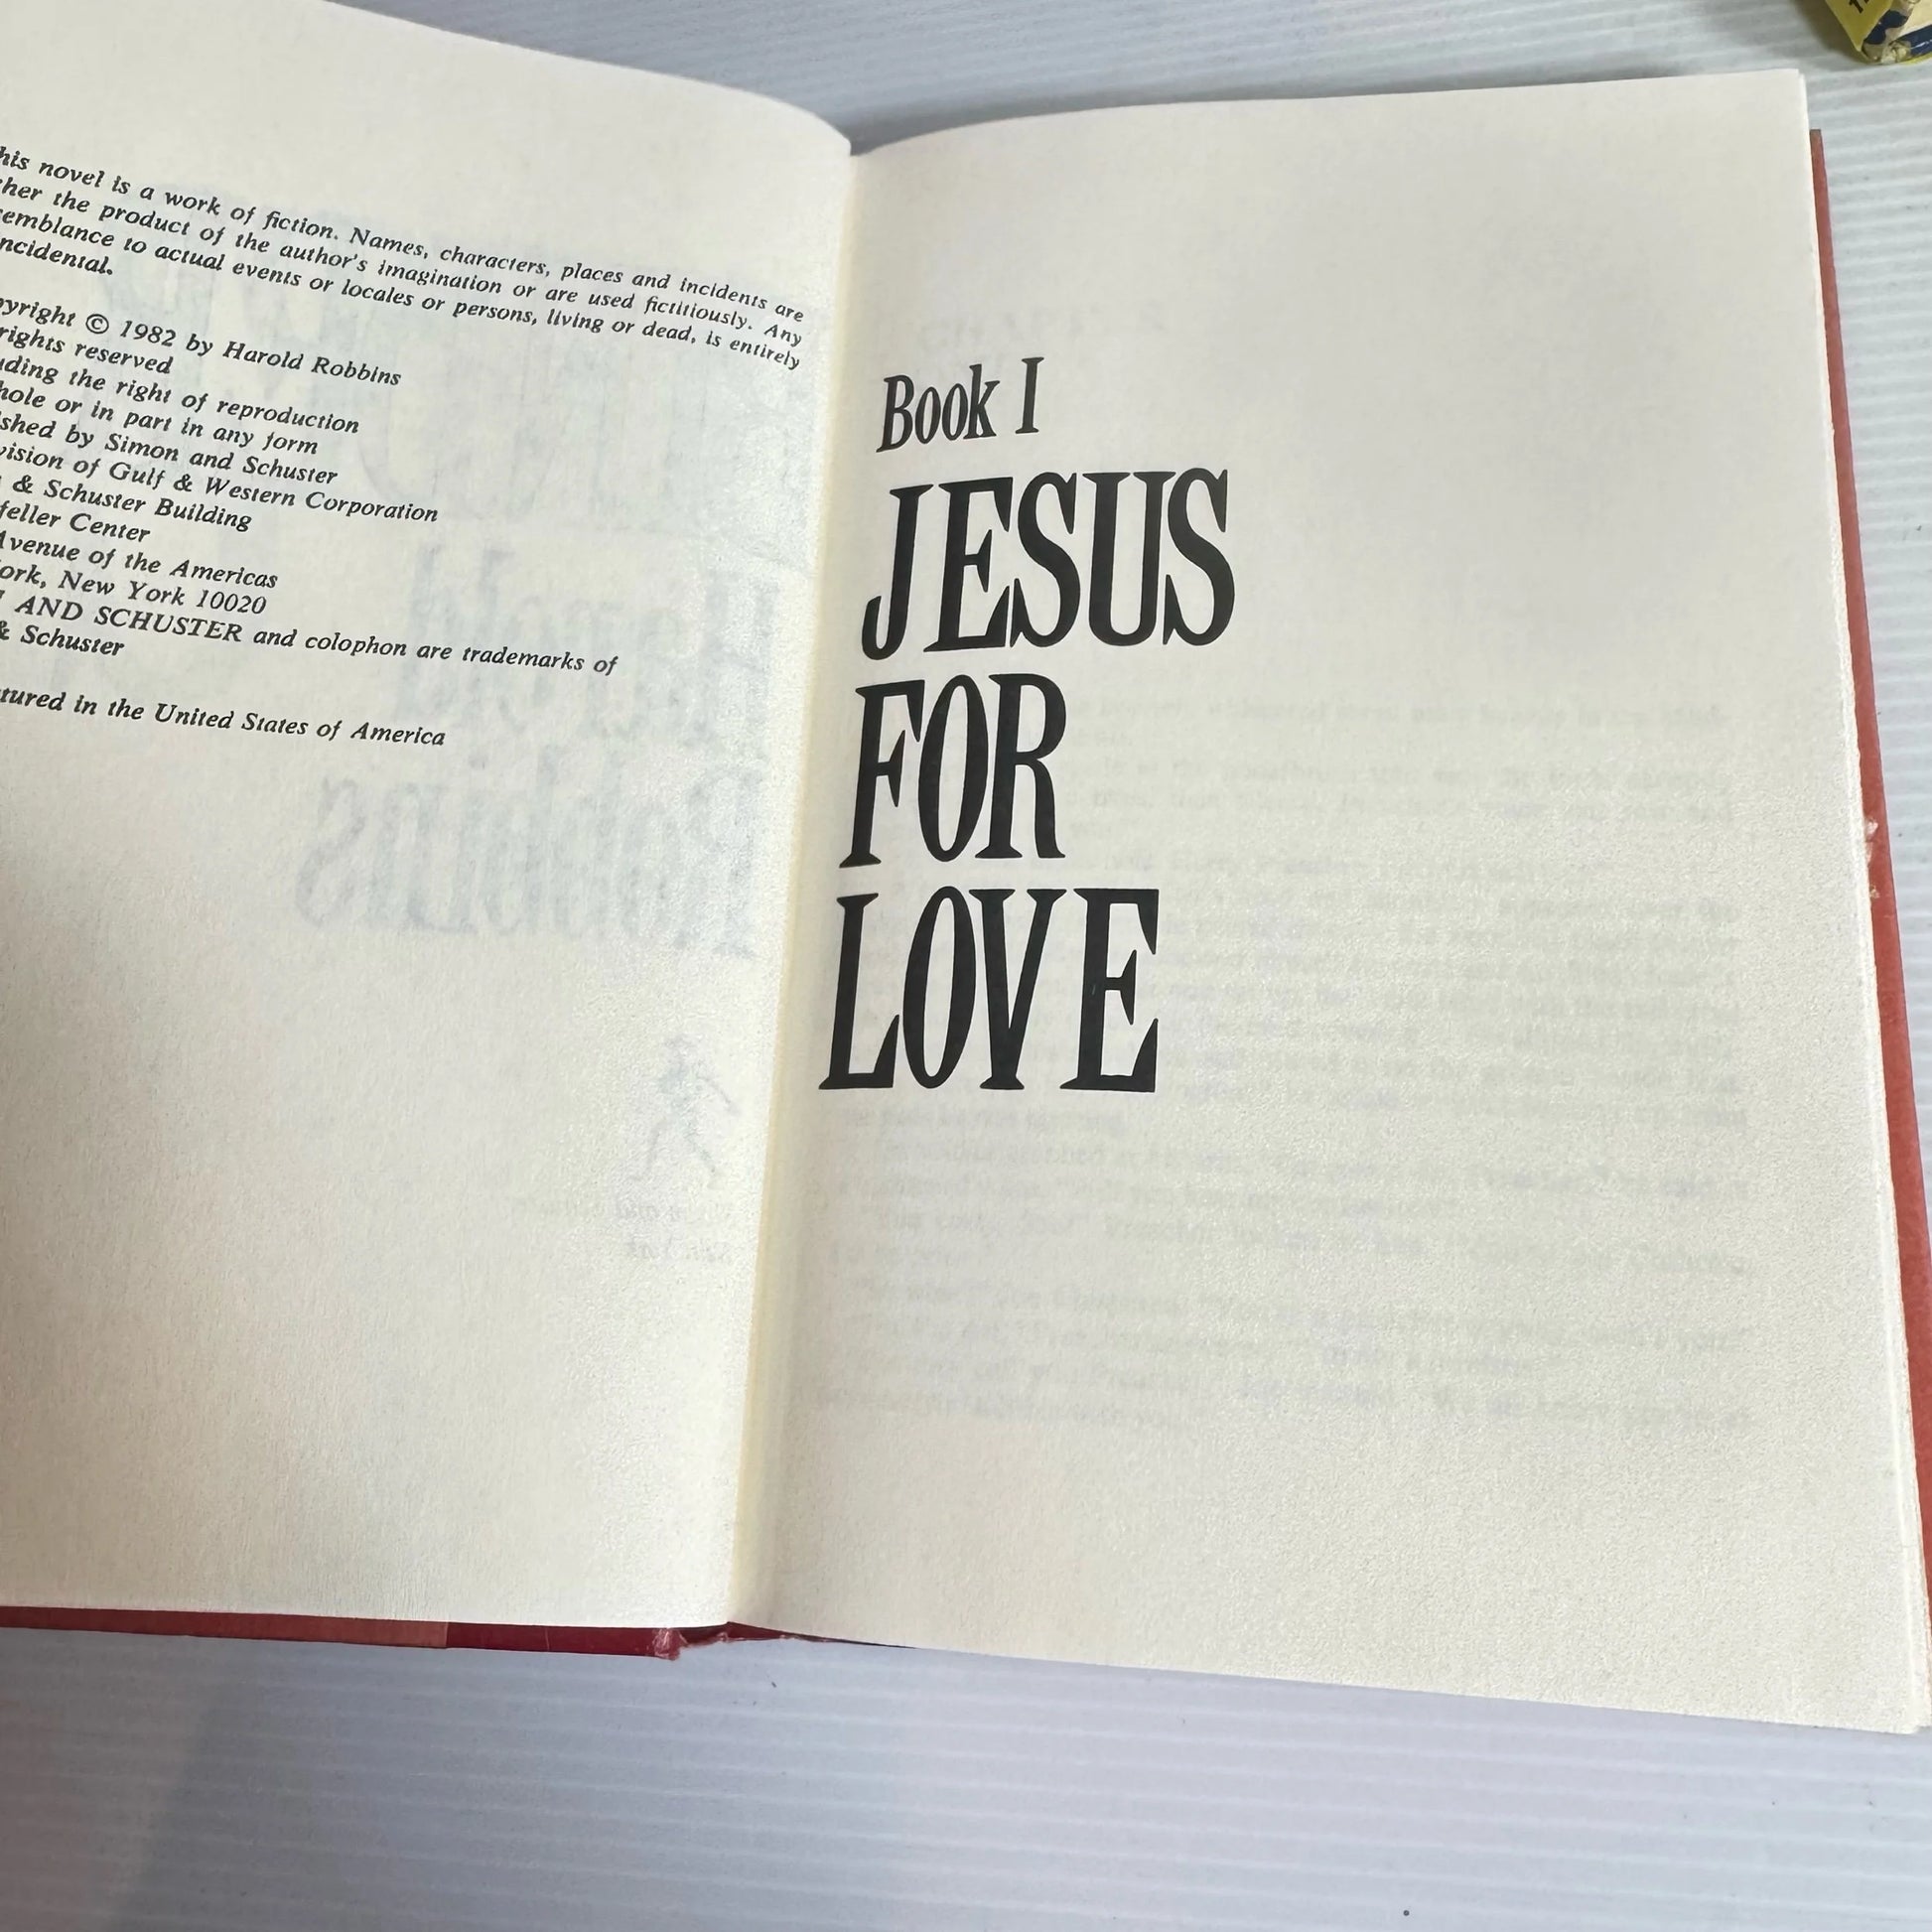 his novel is a work of fiction. Names, characters, places and incidents are
ther the product of the author's imagination or are used fictitiously. Any
semblance to actual events or locales or persons, living or dead, is entirely
incidental.
pyright © 1982 by Harold Robbins
rights reserved
uding the right of reproduction
hole or in part in any form
shed by Simon and Schuster
vision of Gulf & Western Corporation
& Schuster Building
feller Center
Avenue of the Americas
ork, New York 10020
AND SCHUSTER and colophon are trademarks of
& Schuster
tured in the United States of America
Book I
JESUS
FOR
LOVE